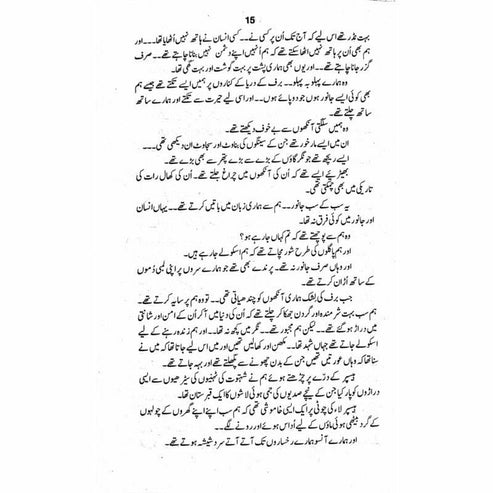 15
بہت نڈر تھے اس لیے کہ آج تک اُن پر کسی نے۔۔ کسی انسان نے ہاتھ نہیں اُٹھایا تھا۔۔۔ اور
ہم بھی اُن پر ہاتھ نہیں اٹھا سکتے تھے کہ ہم اُنہیں اپنے دشمن نہیں بنانا چاہتے تھے۔۔ صرف
گزر جانا چاہتے تھے۔۔ اور یوں بھی ہماری پشت پر بہت گوشت اور بہت گھی تھا۔
وہ ہمارے پہلو بہ پہلو۔۔ برف کے دریا کے کناروں پر ہمیں ایسے تکتے تھے جیسے ہم
بھی کوئی ایسے جانور ہوں جو دوپائے ہوں۔۔ اور اسی لیے حیرت سے تکتے اور ہمارے ساتھ
ساتھ چلتے تھے۔
وہ ہمیں سلگتی آنکھوں سے بے خوف دیکھتے تھے۔
ان میں ایسے مارخور تھے جن کے سینگوں کی بناوٹ اور سجاوٹ ان دیکھی تھی۔۔۔
ایسے ریچھ تھے جو نگر گاؤں کے بڑے سے بڑے پتھر سے بھی بڑے تھے۔
بھیڑیئے ایسے تھے کہ اُن کی آنکھوں میں چراغ جلتے تھے۔ اُن کی کھال رات کی
تاریکی میں بھی چمکتی تھی۔
یہ سب کے سب جانور۔۔ ہم سے ہماری زبان میں باتیں کرتے تھے۔۔ یہاں انسان
اور جانور میں کوئی فرق نہ تھا۔
وہ ہم سے پوچھتے تھے کہ تم کہاں جا رہے ہو؟
اور ہم پاگلوں کی طرح شور مچاتے تھے کہ ہم اسکولے جا رہے ہیں۔
اور وہاں صرف جانور نہ تھے۔ پرندے بھی تھے جو ہمارے سروں پر اپنی لمبی دُموں
کے ساتھ اڑان کرتے تھے۔
جب برف کی لشک ہماری آنکھوں کو چندھیاتی تھی۔۔ تو وہ ہم پر سایہ کرتے تھے۔
ہم سب بہت شرمندہ اور گردن جھکا کر چلتے تھے کہ اُن کی دنیا میں آ کر اُن کے امن اور شانتی
میں دراڑ ہو گئے تھے۔۔ لیکن ہم مجبور تھے۔۔ نگر میں کچھ نہ تھا۔۔ اور ہم زندہ رہنے کے لیے
اسکولے جاتے تھے جہاں شہد تھا۔۔ مکھن اور کھالیں تھیں اور میں اس لیے جاتا تھا کہ میں نے
سنا تھا کہ وہاں عورتیں تھیں جن کے بدن چھونے سے پگھلتے تھے اور بہہ جاتے تھے۔
ہسپر کے درّے پر چڑھتے ہوئے ہم نے شہتوت کی ٹہنیوں کی سیڑھیوں سے ایسی
دراڑوں کو پار کیا جن کے نیچے صدیوں کی جمی ہوئی لاشوں کا ایک قبرستان تھا۔
ہسپر لاء کی چوٹی پر ایک ایسی خاموشی تھی کہ ہم سب اپنے اپنے گھروں کے چولہوں
کے گرد بیٹھی ہوئی ماؤں کے لیے اُداس ہوئے اور رونے لگے۔۔
اور ہمارے آنسو ہمارے رخساروں تک آتے آتے سرد شیشہ ہوتے تھے۔